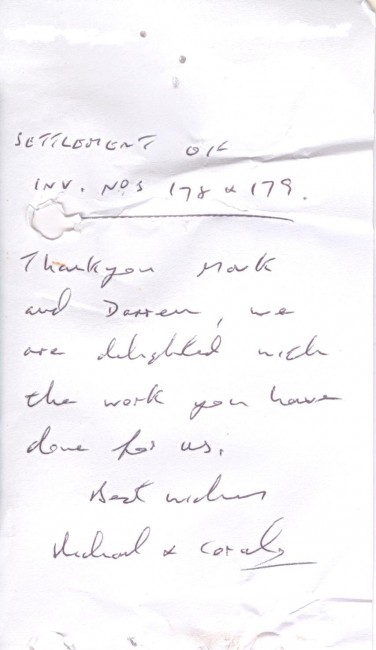 SETTLEMENT OF
INV. NOS 178 & 179.
Thankyou Mark
and Darren, we
are delighted with
the work you have
done for us.
Best wishes
Michael &